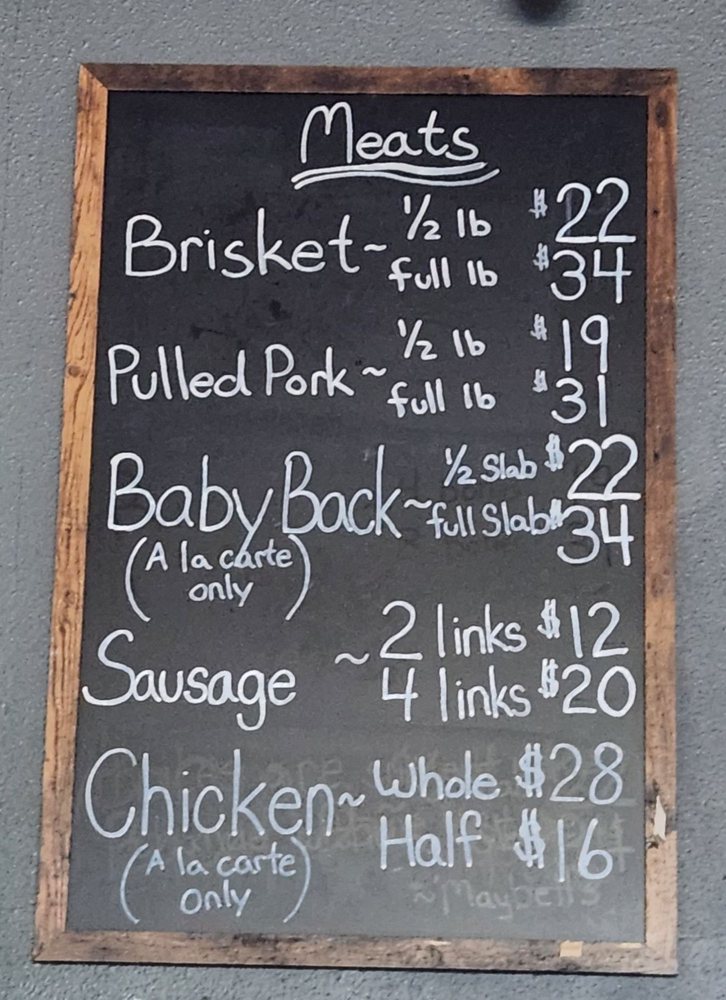 Meats
Brisket~ 1/2 lb $22
full lb $34
Pulled Pork~ 1/2 lb $19
full lb $31
Baby Back~ 1/2 Slab $22
full Slab $34
(A la carte
only)
Sausage ~ 2 links $12
4 links $20
Chicken~ Whole $28
Half $16
(A la carte
only)
~Maybell's